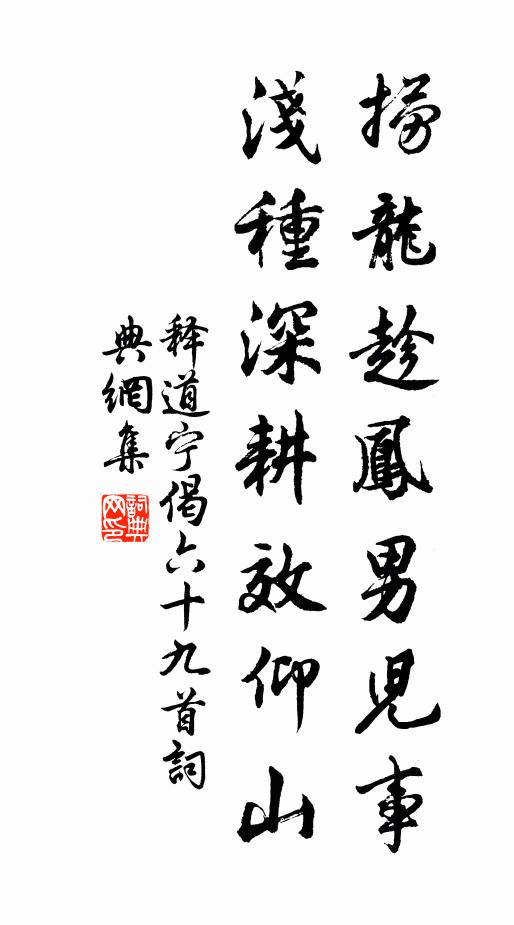 撈龍趁鳳男兒事
淺種深耕效仰山
释道宁偈六十九首詞
典網集
詞典网印